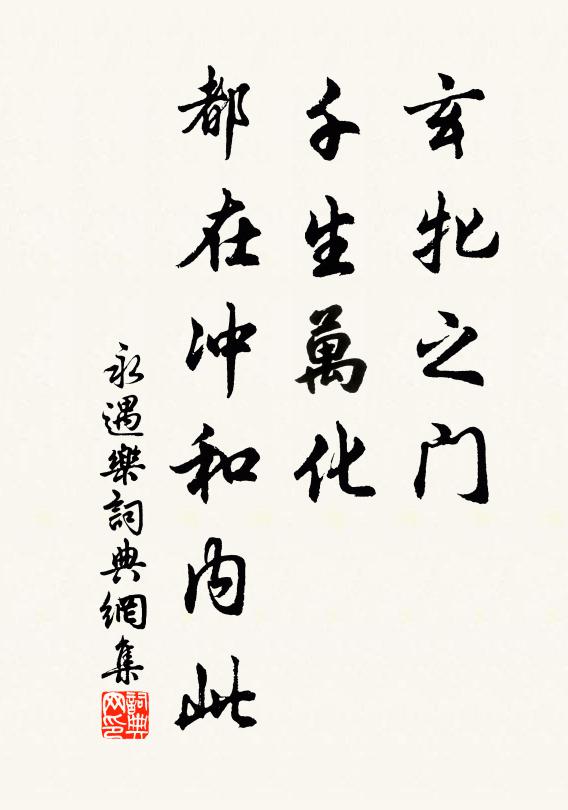 玄牝之门
千生萬化
都在冲和内此
永遇樂詞典網集
詞典
网印